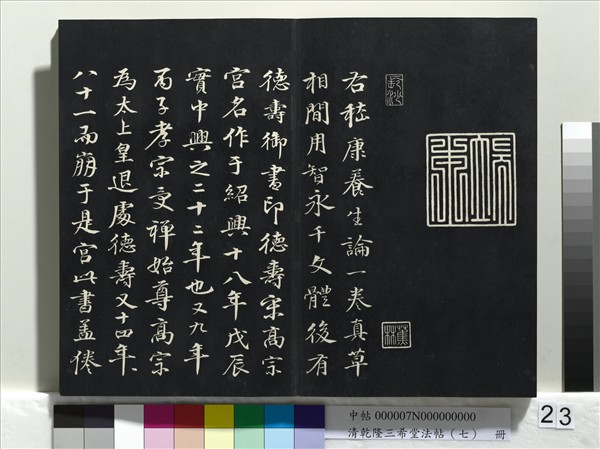 右嵇康養生論一卷真草
相間用智永千文體後有
德壽御書印德壽宋高宗
宮名作于紹興十八年戊辰
實中興之二十二年也又九年
丙子孝宗受禪始尊高宗
為太上皇退處德壽又十四年
八十一而崩于是宮此書蓋倦
中帖 000007N000000000
清乾隆三希堂法帖（七） 冊
23